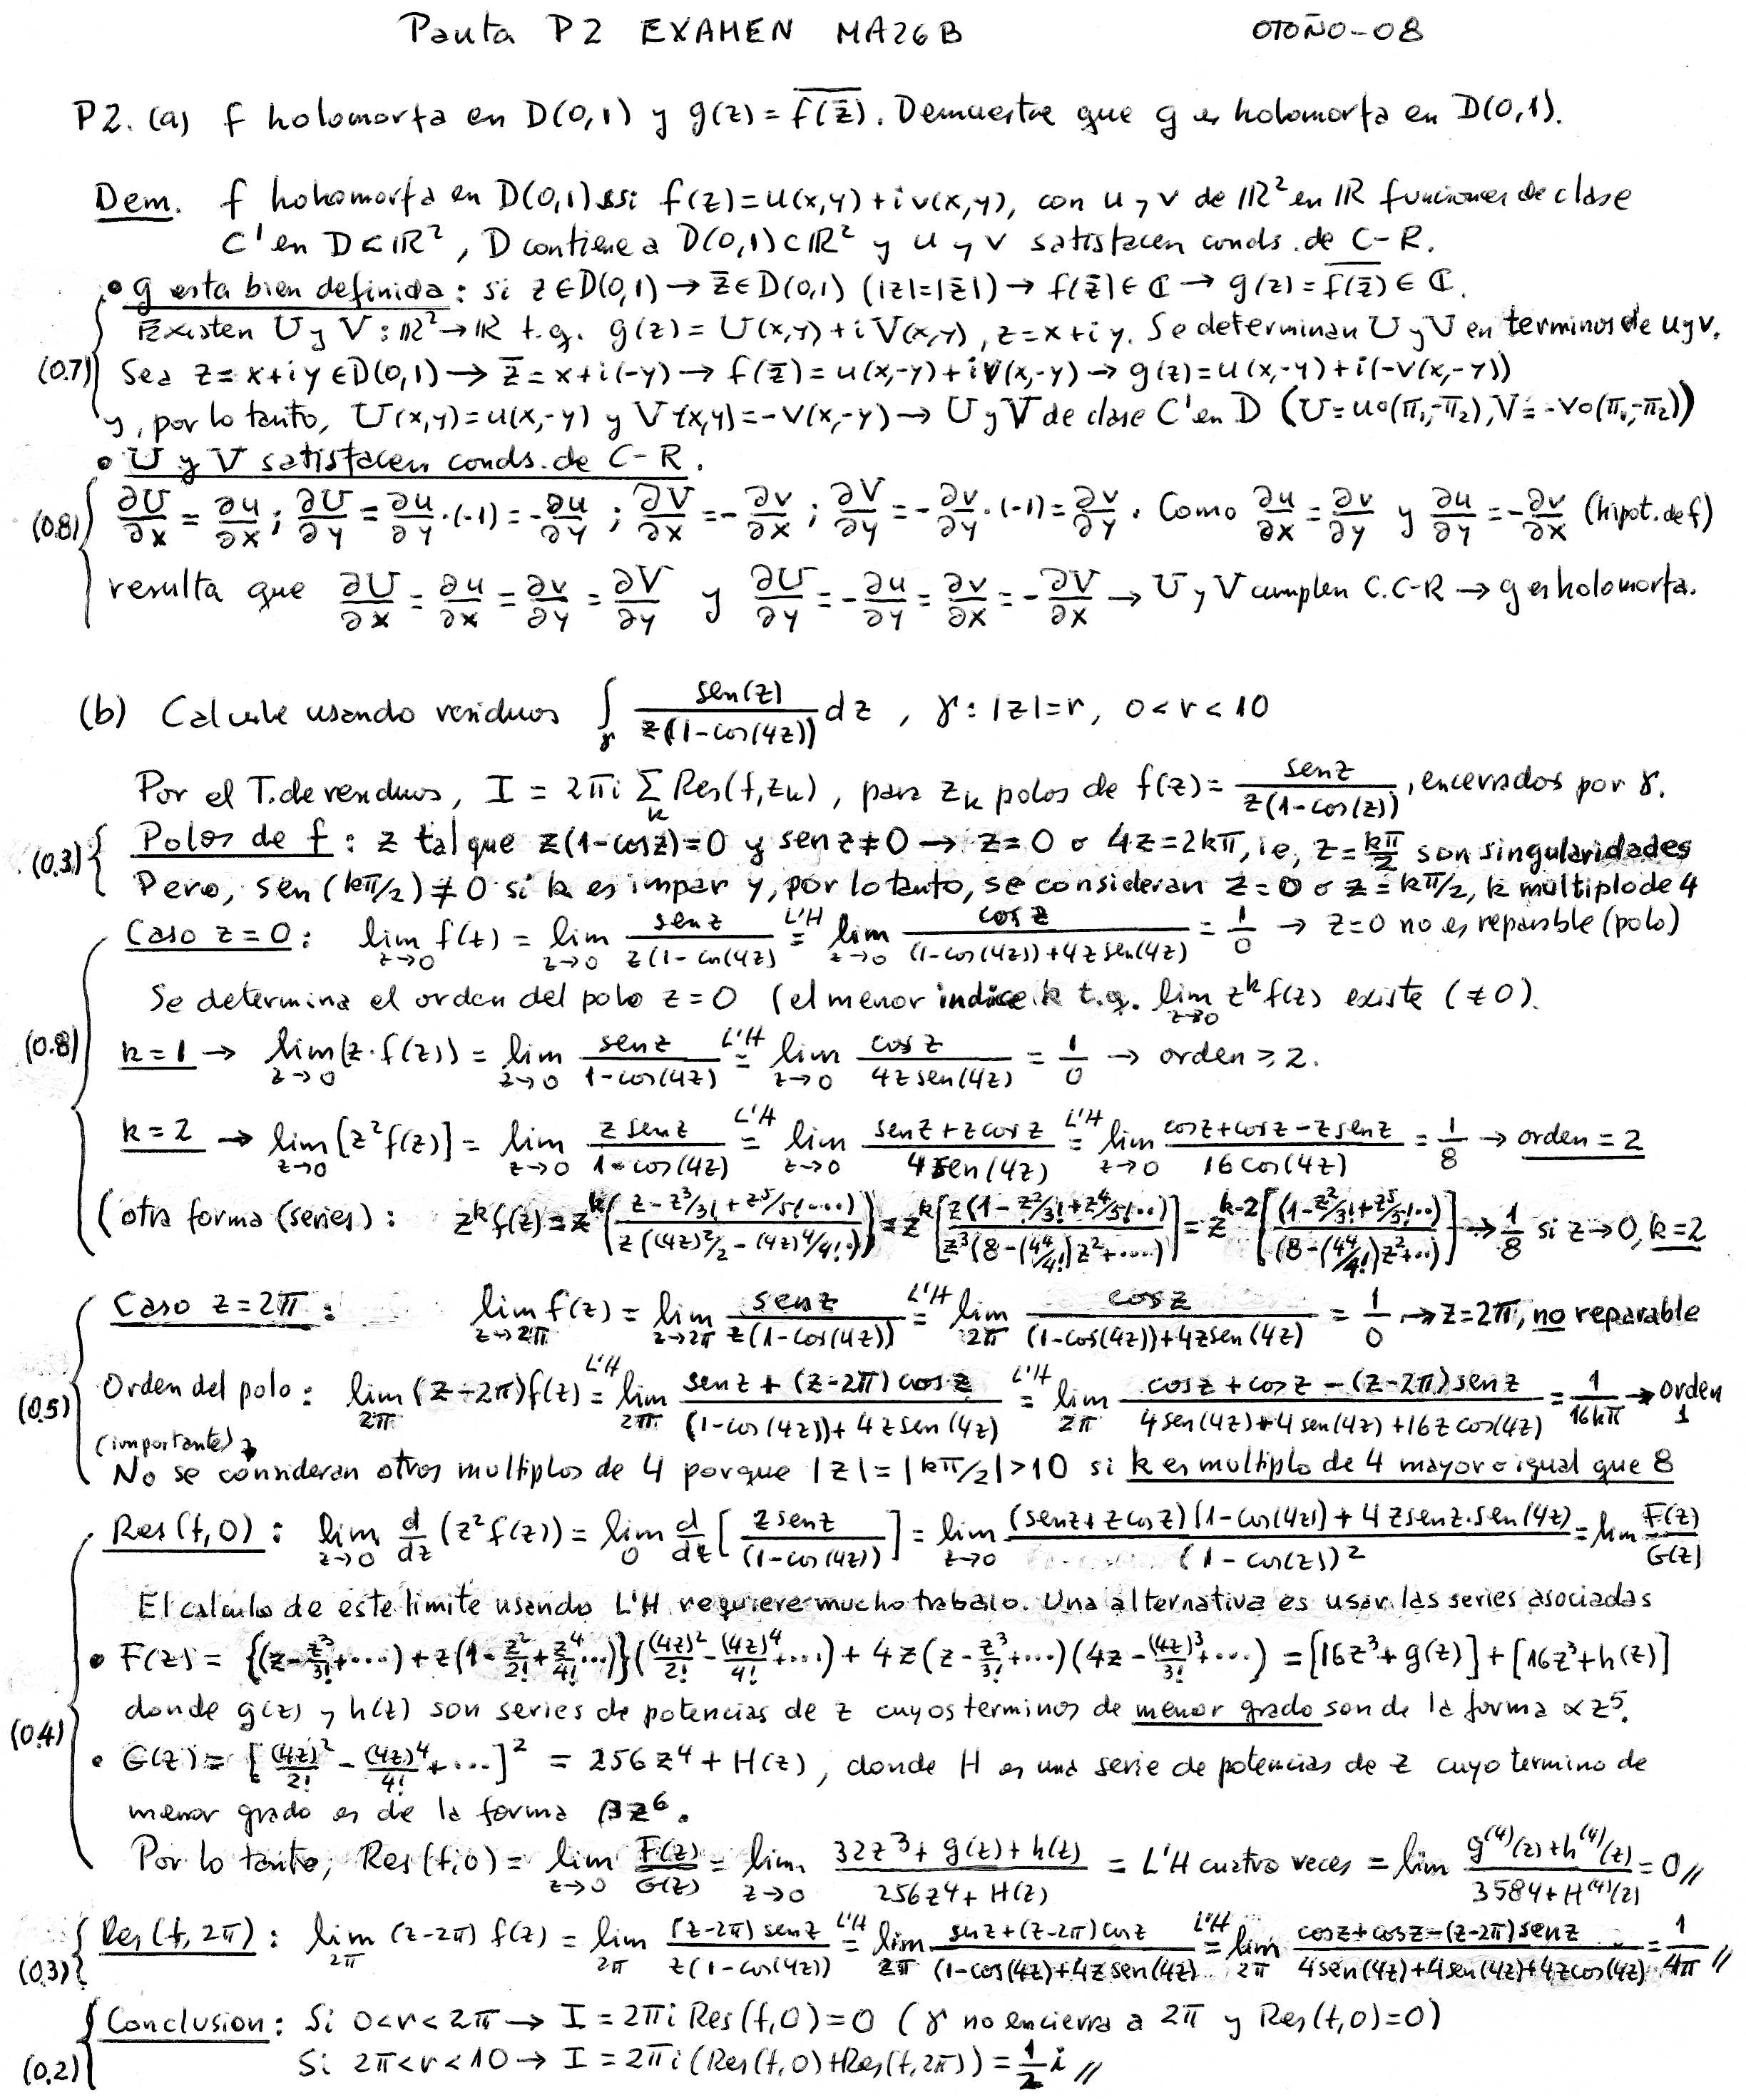 Pauta P2 EXAMEN MA26B OTOÑO-08
P2. (a) f holomorfa en D(0,1) y g(z) = \overline{f(\bar{z})}. Demuestre que g es holomorfa en D(0,1).
Dem. f holomorfa en D(0,1) ssi f(z)=u(x,y)+iv(x,y), con u y v de ℝ² en ℝ funciones de clase
C¹ en D⊂ℝ², D contiene a D(0,1)⊂ℝ² y u y v satisfacen conds. de C-R.
• g esta bien definida: si z∈D(0,1) → \bar{z}∈D(0,1) (|z|=|\bar{z}|) → f(\bar{z})∈ℂ → g(z)=\overline{f(\bar{z})}∈ℂ.
Existen U y V: ℝ²→ℝ t.q. g(z) = U(x,y)+iV(x,y), z=x+iy. Se determinan U y V en terminos de u y v.
(0.7) Sea z=x+iy∈D(0,1) → \bar{z}=x+i(-y) → f(\bar{z})=u(x,-y)+iv(x,-y) → g(z)=u(x,-y)+i(-v(x,-y))
y, por lo tanto, U(x,y)=u(x,-y) y V(x,y)=-v(x,-y) → U y V de clase C¹ en D (U=u∘(π₁,-π₂), V=-v∘(π₁,-π₂))
• U y V satisfacen conds. de C-R.
(0.8) ∂U/∂x = ∂u/∂x ; ∂U/∂y = ∂u/∂y·(-1) = -∂u/∂y ; ∂V/∂x = -∂v/∂x ; ∂V/∂y = -∂v/∂y·(-1) = ∂v/∂y. Como ∂u/∂x = ∂v/∂y y ∂u/∂y = -∂v/∂x (hipot. de f)
resulta que ∂U/∂x = ∂u/∂x = ∂v/∂y = ∂V/∂y y ∂U/∂y = -∂u/∂y = ∂v/∂x = -∂V/∂x → U y V cumplen C.C-R → g es holomorfa.
(b) Calcule usando residuos ∫_γ sen(z)/(z(1-cos(4z))) dz, γ: |z|=r, 0<r<10
Por el T. de residuos, I = 2πi Σ_k Res(f,z_k), para z_k polos de f(z) = sen z/(z(1-cos(z))), encerrados por γ.
(0.3) Polos de f: z tal que z(1-cos z)=0 y sen z≠0 → z=0 o 4z=2kπ, ie, z=kπ/2 son singularidades
Pero, sen(kπ/2)≠0 si k es impar y, por lo tanto, se consideran z=0 o z=kπ/2, k multiplo de 4
Caso z=0: lim_{z→0} f(z) = lim_{z→0} sen z/(z(1-cos(4z)) =^{L'H} lim_{z→0} cos z/((1-cos(4z))+4z sen(4z)) = 1/0 → z=0 no es reparable (polo)
Se determina el orden del polo z=0 (el menor indice k t.q. lim_{z→0} z^k f(z) existe (≠0).
(0.8) k=1 → lim_{z→0}(z·f(z)) = lim_{z→0} sen z/(1-cos(4z)) =^{L'H} lim_{z→0} cos z/(4z sen(4z)) = 1/0 → orden ≥ 2.
k=2 → lim_{z→0}[z²f(z)] = lim_{z→0} z sen z/(1-cos(4z)) =^{L'H} lim_{z→0} (sen z+z cos z)/(4 sen(4z)) =^{L'H} lim_{z→0} (cos z+cos z-z sen z)/(16 cos(4z)) = 1/8 → orden = 2
(otra forma (series): z^k f(z) = z^k((z-z³/3!+z⁵/5!...)/(z((4z)²/2-(4z)⁴/4!..))) = z^k[z(1-z²/3!+z⁴/5!..)/(z³(8-(4⁴/4!)z²+....))] = z^{k-2}[(1-z²/3!+z⁵/5!..)/(8-(4⁴/4!)z²+..)] → 1/8 si z→0, k=2
Caso z=2π: lim_{z→2π} f(z) = lim_{z→2π} sen z/(z(1-cos(4z))) =^{L'H} lim_{2π} cos z/((1-cos(4z))+4z sen(4z)) = 1/0 → z=2π, no reparable
(0.5) Orden del polo: lim_{2π}(z-2π)f(z) =^{L'H} lim_{2π} (sen z+(z-2π)cos z)/((1-cos(4z))+4z sen(4z)) =^{L'H} lim_{2π} (cos z+cos z-(z-2π)sen z)/(4sen(4z)+4sen(4z)+16z cos(4z)) = 1/16kπ → orden 1
(importante)
No se consideran otros multiplos de 4 porque |z|=|kπ/2|>10 si k es multiplo de 4 mayor o igual que 8
Res(f,0): lim_{z→0} d/dz (z²f(z)) = lim_0 d/dz [z sen z/(1-cos(4z))] = lim_{z→0} ((sen z+z cos z)(1-cos(4z))+4z sen z·sen(4z))/(1-cos(z))² = lim F(z)/G(z)
El calculo de este limite usando L'H requiere mucho trabajo. Una alternativa es usar las series asociadas
• F(z) = {(z-z³/3!+...)+z(1-z²/2!+z⁴/4!...)}((4z)²/2!-(4z)⁴/4!+...)+4z(z-z³/3!+...)(4z-(4z)³/3!+...) = [16z³+g(z)]+[16z³+h(z)]
donde g(z) y h(z) son series de potencias de z cuyos terminos de menor grado son de la forma αz⁵.
(0.4) • G(z) = [(4z)²/2!-(4z)⁴/4!+...]² = 256z⁴+H(z), donde H es una serie de potencias de z cuyo termino de
menor grado es de la forma βz⁶.
Por lo tanto, Res(f,0) = lim_{z→0} F(z)/G(z) = lim_{z→0} (32z³+g(z)+h(z))/(256z⁴+H(z)) = L'H cuatro veces = lim (g⁽⁴⁾(z)+h⁽⁴⁾(z))/(3584+H⁽⁴⁾(z)) = 0 //
(0.3) Res(f,2π): lim_{2π} (z-2π) f(z) = lim_{2π} (z-2π)sen z/(z(1-cos(4z))) =^{L'H} lim_{2π} (sen z+(z-2π)cos z)/((1-cos(4z)+4z sen(4z)) =^{L'H} lim_{2π} (cos z+cos z-(z-2π)sen z)/(4sen(4z)+4sen(4z)+4z cos(4z)) = 1/4π //
Conclusion: Si 0<r<2π → I = 2πi Res(f,0) = 0 (γ no encierra a 2π y Res(f,0)=0)
(0.2) Si 2π<r<10 → I = 2πi(Res(f,0)+Res(f,2π)) = 1/2 i //